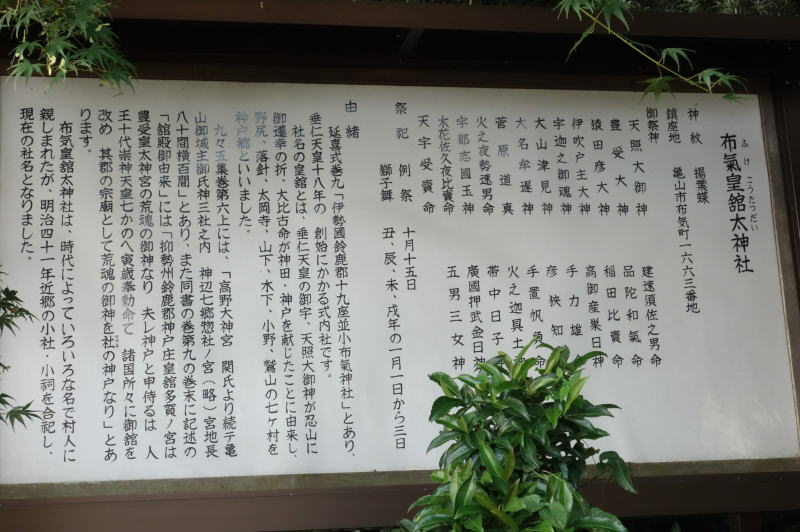 ふけ こうたつだい
布氣皇舘太神社
神紋 揚葉蝶
鎮座地 亀山市布気町一六六三番地
御祭神
天照大御神 建速須佐之男命
豊受大神 品陀和氣命
猿田彦大神 稲田比賣命
伊吹戸主大神 高御産巣日神
宇迦之御魂神 手力雄
大山津見神 彦狭知
大名牟遅神 手置帆負命
菅原道真 火之迦具土神
火之夜勢速男命 帯中日子
宇都志國玉神 廣國押武金日神
木花佐久夜比賣命 五男三女神
天宇受賣命
祭祀 例祭 十月十五日
獅子舞 丑、辰、未、戌年の一月一日から三日
由緒
延喜式巻九「伊勢國鈴鹿郡十九座並小布氣神社」とあり、
垂仁天皇十八年の 創始にかかる式内社です。
社名の皇舘とは、垂仁天皇の御宇、天照大御神が忍山に
御遷幸の折、大比古命が神田・神戸を献じたことに由来し、
野尻、落針、太岡寺、山下、木下、小野、鷲山の七ヶ村を
神戸郷といいました。
九々五集巻第六上には、「高野大神宮 関氏より続テ亀
山御城主御氏神三社之内 神辺七郷惣社ノ宮(略)宮地長
八十間横百間」とあり、また同書の巻第九の巻末に記述の
「舘殿御由来」には「抑勢州鈴鹿郡神戸庄皇舘多賀ノ宮は
豊受皇太神宮の荒魂の御神なり 夫レ神戸と申侍るは 人
王十代崇神天皇七かのへ寅歳奉勅命て 諸国所々に御舘を
改め 其郡の宗廟として荒魂の御神を社の神戸なり」とあ
ります。
布気皇舘太神社は、時代によっていろいろな名で村人に
親しまれたが、明治四十一年近郷の小社・小祠を合祀し、
現在の社名となりました。